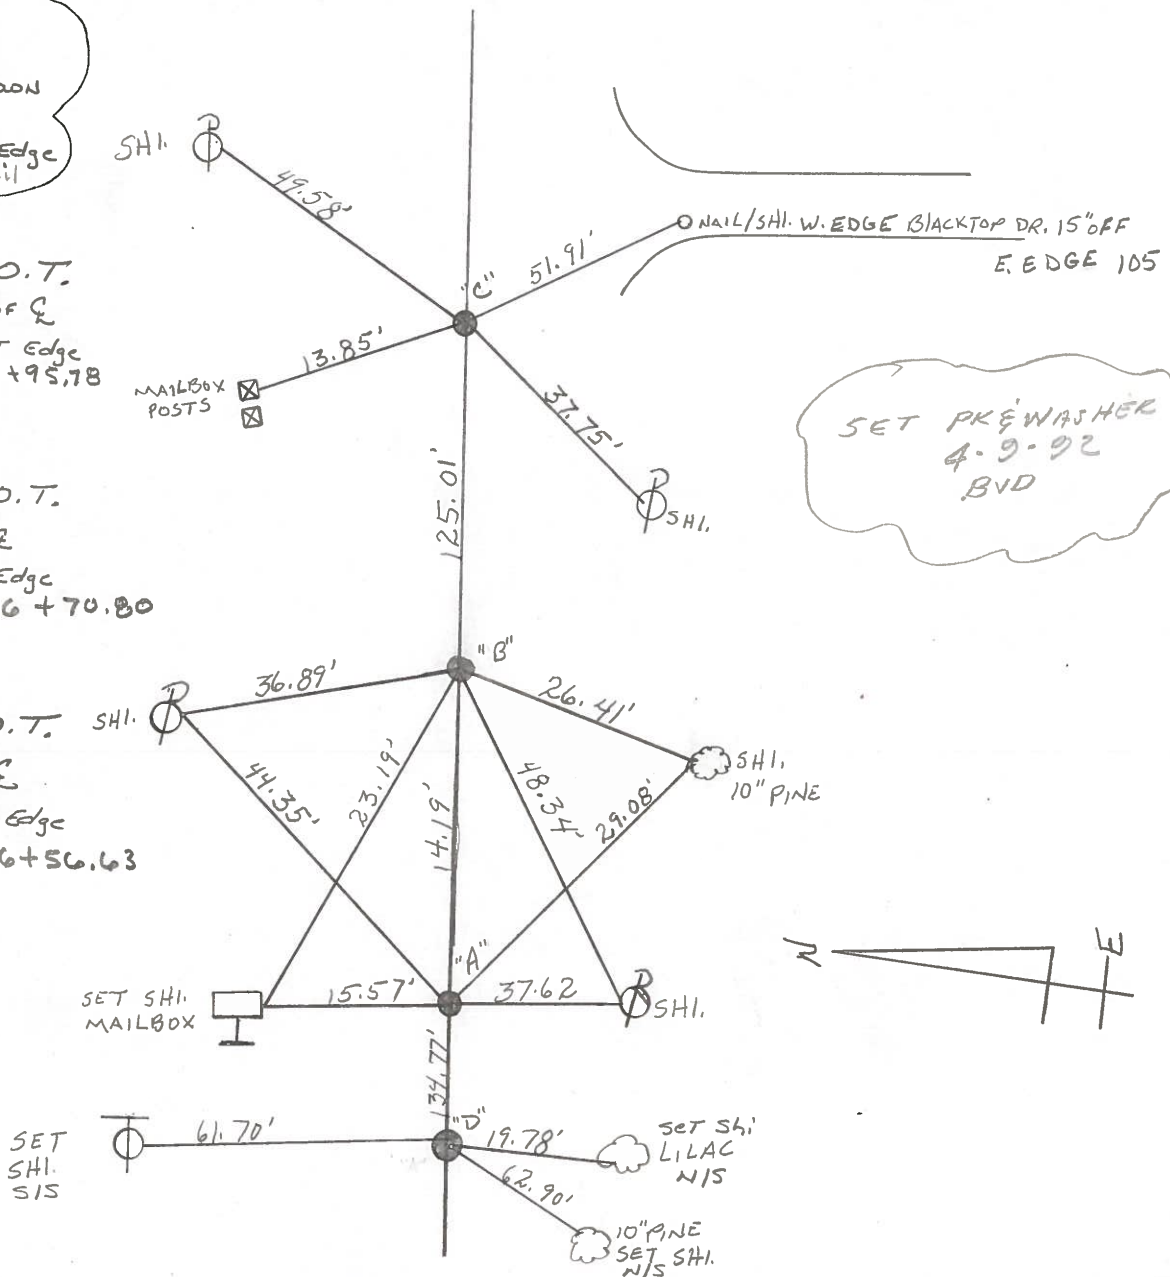 Edge
SHI.
49.58'
NAIL/SHI. W. EDGE BLACKTOP DR. 15" OFF
E. EDGE 105
51.91'
"C"
O.T.
OF ℄
Edge
+95.78
13.85'
MAILBOX
POSTS
37.75'
SHI.
SET PK & WASHER
4-9-92
BVD
125.01'
O.T.
Edge
6+70.80
"B"
36.89'
26.41'
SHI.
O.T.
Edge
6+56.63
SHI.
10" PINE
44.35'
23.19'
14.19'
48.34'
29.08'
"A"
SET SHI.
MAILBOX
15.57'
37.62
SHI.
N
134.77'
"D"
SET
SHI.
S/S
61.70'
19.78'
SET Shi
LILAC
N/S
62.90'
10" PINE
SET SHI.
N/S